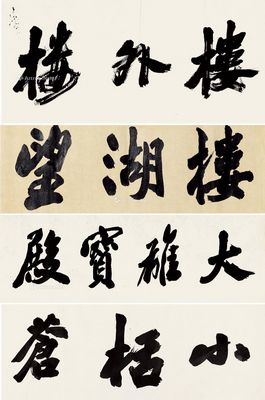 樓外楼
望湖樓
大雄寶殿
小栝蒼